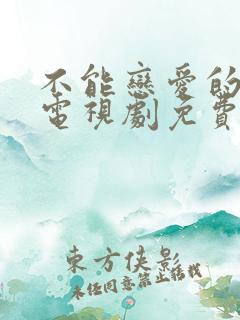 不能戀愛的
電視劇免費
東方俠影
未經同意禁止轉載